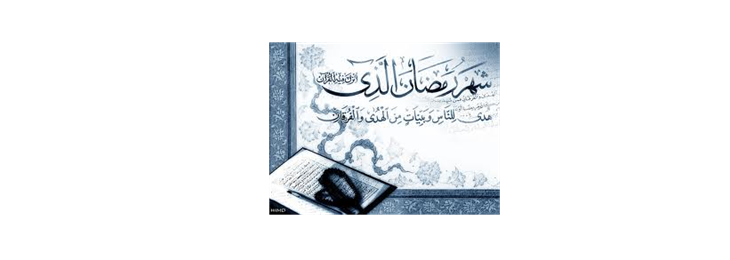 شَهرُ رَمَضَانَ الَّذِى أُنزِلَ فِيهِ القُرآنُ
هُدًى لِلنَّاسِ وَبَيِّنَاتٍ مِنَ الْهُدَى وَالْفُرقَانِ